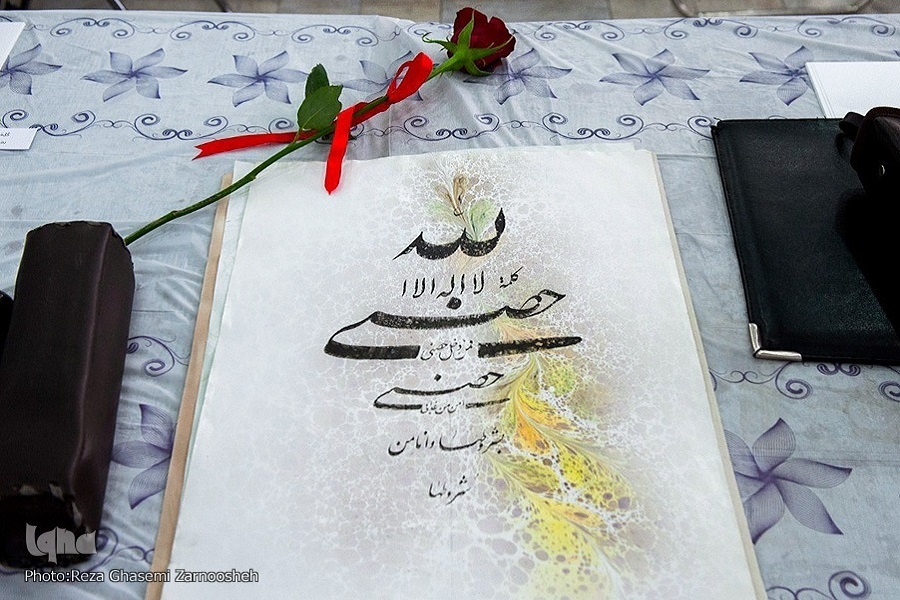 لله
كلمة لا اله الا ا
حصنی
فمن دخل حصنی
حصنی
امن من عذابی
بشروطها وانا من
شروطها
iqna
Photo:Reza Ghasemi Zarnoosheh